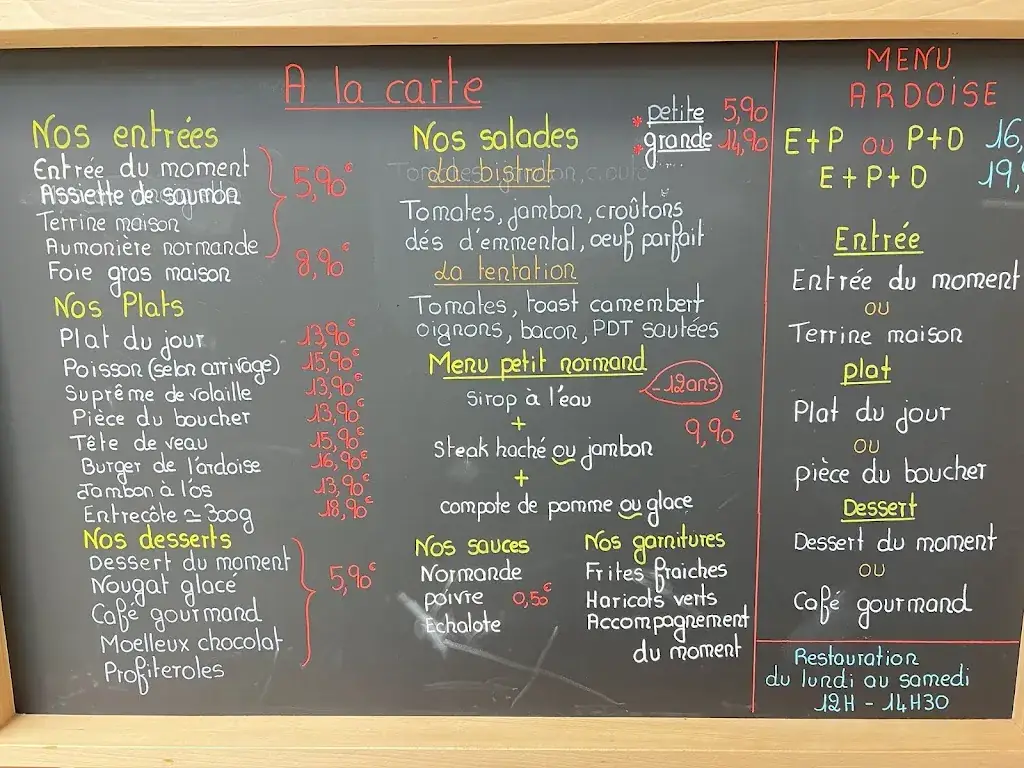 A la carte
Nos entrées
Entrée du moment
Assiette de saumon
Terrine maison
Aumonière normande
5,90€
Foie gras maison 8,90€
Nos Plats
Plat du jour 13,90€
Poisson (selon arrivage) 15,90€
Suprême de volaille 13,90€
Pièce du boucher 13,90€
Tête de veau 15,90€
Burger de l'ardoise 16,90€
Jambon à l'os 13,90€
Entrecôte ≃ 300g 18,90€
Nos desserts
Dessert du moment
Nougat glacé
Café gourmand
Moelleux chocolat
Profiteroles
5,90€
Nos salades
* petite 5,90
* grande 14,90
La bistrot
Tomates, jambon, croûtons
dés d'emmental, oeuf parfait
La tentation
Tomates, toast camembert
oignons, bacon, PDT sautées
Menu petit normand
- 12ans
Sirop à l'eau
+
9,90€
Steak haché ou jambon
+
compote de pomme ou glace
Nos sauces
Normande
poivre 0,50€
Echalote
Nos garnitures
Frites fraiches
Haricots verts
Accompagnement
du moment
MENU
ARDOISE
E+P ou P+D 16,
E+P+D 19,
Entrée
Entrée du moment
ou
Terrine maison
plat
Plat du jour
ou
pièce du boucher
Dessert
Dessert du moment
ou
Café gourmand
Restauration
du lundi au samedi
12H - 14H30